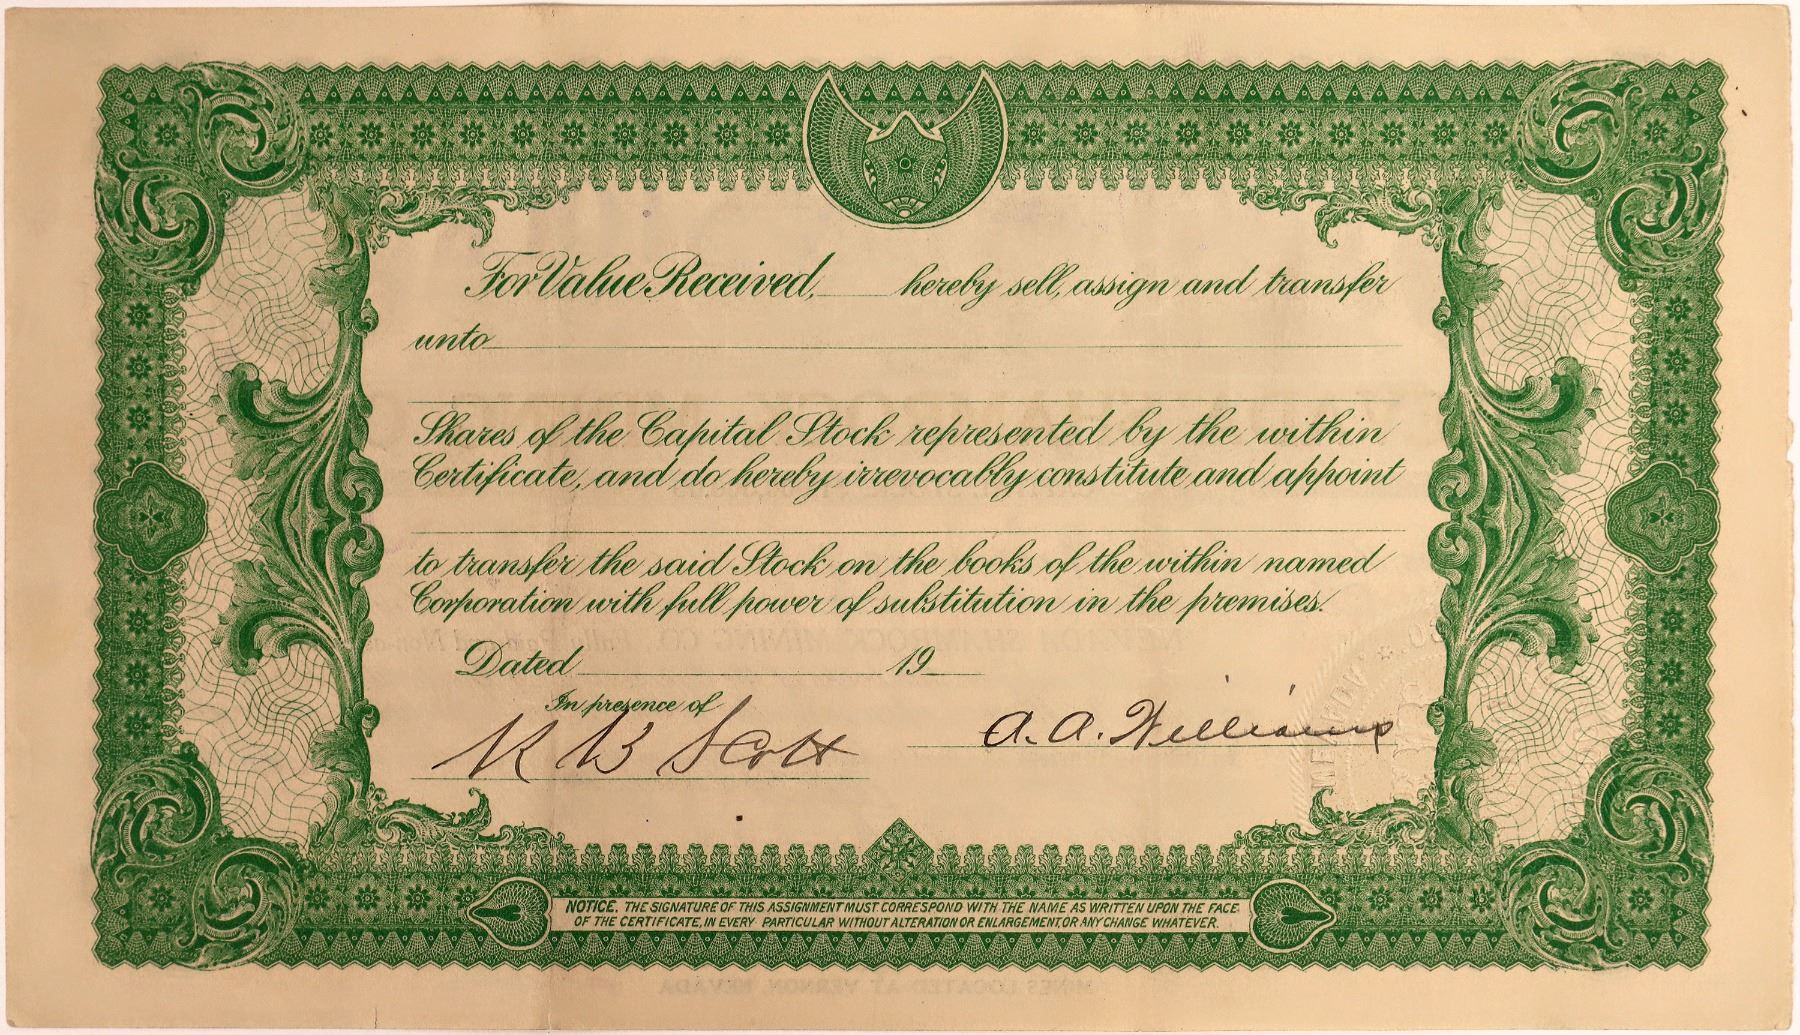 For Value Received, hereby sell, assign and transfer
unto
Shares of the Capital Stock represented by the within
Certificate, and do hereby irrevocably constitute and appoint
to transfer the said Stock on the books of the within named
Corporation with full power of substitution in the premises.
Dated 19
In presence of
A. A. Williams
Scott
NOTICE. THE SIGNATURE OF THIS ASSIGNMENT MUST CORRESPOND WITH THE NAME AS WRITTEN UPON THE FACE
OF THE CERTIFICATE, IN EVERY PARTICULAR WITHOUT ALTERATION OR ENLARGEMENT, OR ANY CHANGE WHATEVER.
MINES LOCATED AT VERNON, NEVADA
NEVADA SHAMROCK MINING CO.